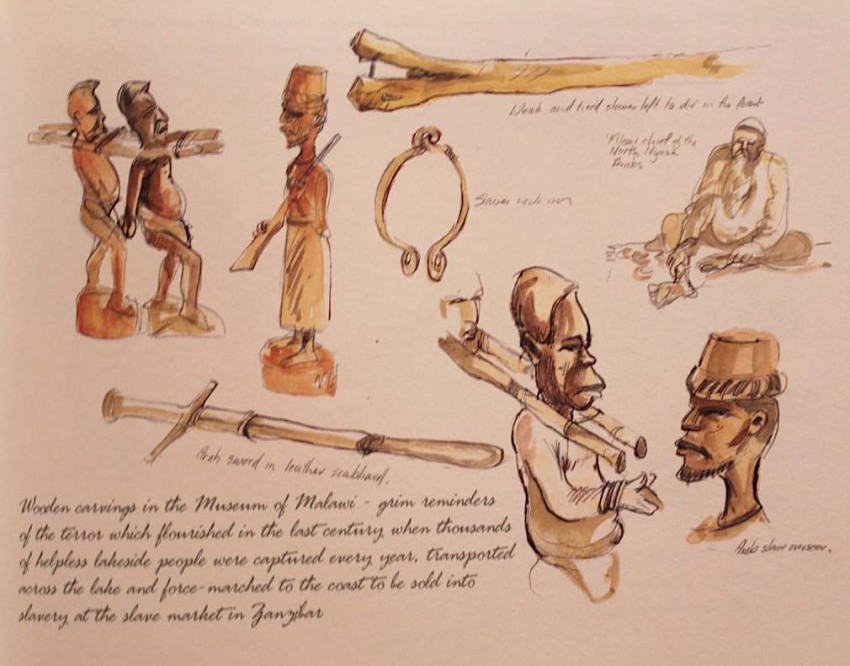 Weak and tired slaves left to die in the forest
Mlozi chief of the
North Nyasa
Arabs
Slaver neck iron
Arab sword in leather scabbard.
Arab slave overseer.
Wooden carvings in the Museum of Malawi - grim reminders
of the terror which flourished in the last century when thousands
of helpless lakeside people were captured every year, transported
across the lake and force-marched to the coast to be sold into
slavery at the slave market in Zanzibar